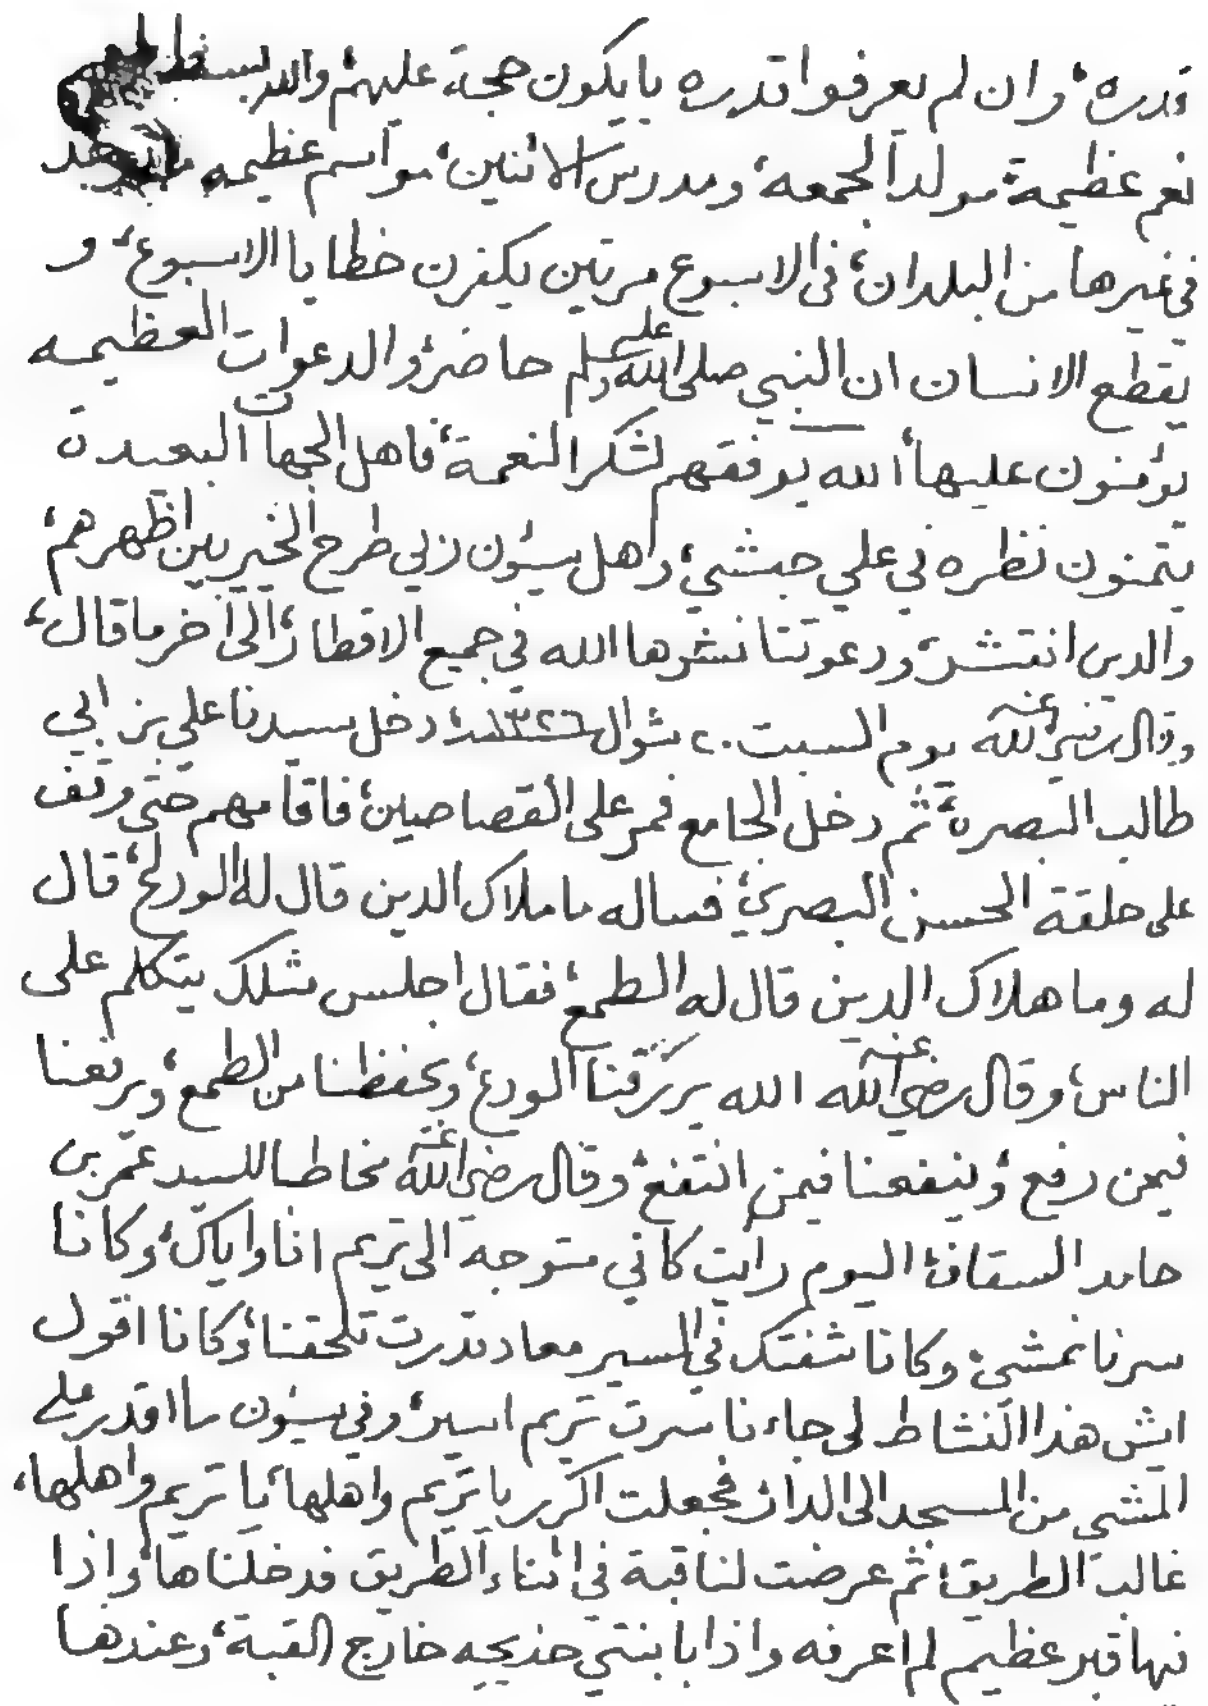 قدره، وان لم يعرفوا قدره بايكون حجة عليهم، والله
نعم عظيمة، مولد الجمعه، ومدرس الاثنين، مواسم عظيمه
في غيرها من البلدان، في الاسبوع مرتين يكفرن خطايا الاسبوع، و
يقطع الانسان ان النبي صلى الله عليه وسلم حاضر، والدعوات العظيمه
يؤمنون عليها، الله يوفقهم لشكر النعمة، فاهل الجهات البعيدة
يتمنون نظره في علي حبشي، واهل سيئون ذي طرح الخير بين اظهرهم،
والدين انتشر، ودعوتنا نشرها الله في جميع الاقطار، الى آخر ما قال،
وقال رضي الله عنه يوم السبت ٢٠ شوال ١٣٢٦ﻫ، دخل سيدنا علي بن ابي
طالب البصرة، ثم دخل الجامع فمر على القصاصين، فاقامهم حتى وقف
على حلقة الحسن البصري، فساله ما ملاك الدين قال له الورع، قال
له وما هلاك الدين قال له الطمع، فقال اجلس مثلك يتكلم على
الناس، وقال رضي الله عنه الله يرزقنا الورع، ويحفظنا من الطمع، ويرفعنا
فيمن رفع، وينفعنا فيمن انتفع، وقال رضي الله عنه مخاطبا للسيد عمر بن
حامد السقاف، اليوم رايت كاني متوجه الى تريم انا واياك، وكانا
سرنا نمشي، وكانا شفتك في السير معاد قدرت تلحقنا، وكانا اقول
ايش هذا النشاط لى جاءنا سرت تريم اسير، وفي سيون ما اقدر على
المشي من المسجد الى الدار، فجعلت اكرر يا تريم واهلها، يا تريم واهلها،
غالب الطريق، ثم عرضت لنا قبة في اثناء الطريق فدخلناها، واذا
فيها قبر عظيم لم اعرفه واذا بابنتي خديجه خارج القبة، وعندها